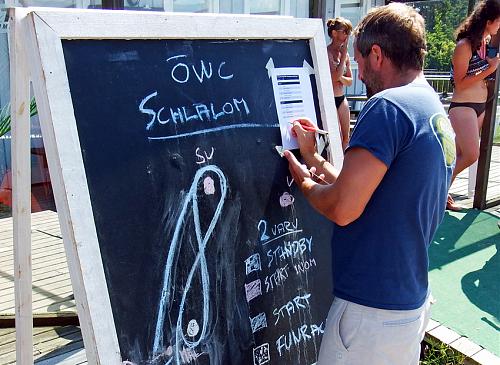 ŌWC
SCHLALOM
SV
V
2 VARV
STANDBY
START INOM
START
FUNRAC